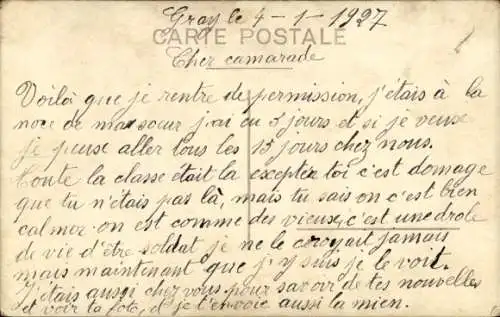 Gray le 4-1-1927
CARTE POSTALE
Cher camarade
Voilà que je rentre de permission, j'étais à la
noce de ma soeur j'ai eu 5 jours et si je veuse
je peuse aller tous les 15 jours chez nous.
Toute la classe était la excepter toi c'est domage
que tu n'étais pas là, mais tu sais on c'est bien
calmer on est comme des vieux, c'est une drole
de vie d'être soldat je ne le croyait jamais
mais maintenant que j'y suis je le voit.
J'étais aussi chez vous pour savoir de tes nouvelles
et voir ta foto, et je t'envoie aussi la mien.